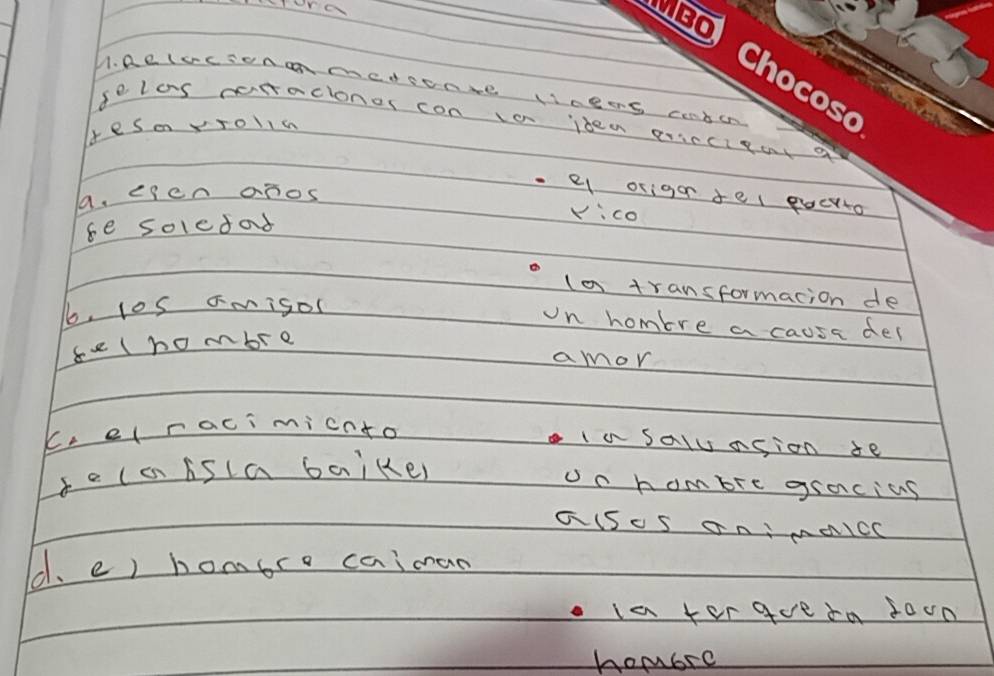 1. Relacion mediante lineas cada
de las narraciones con la idea principal q
desarrolla
a. cien años
de soledad
b. los amigos
del hombre
c. el nacimiento
de la isla baiker
d. el hombre caiman
• el origen del puerto
rico
• la transformacion de
un hombre a causa del
amor
• la salvasion de
un hombre gracias
a
• la terqueda
hombre
MBO
Chocoso